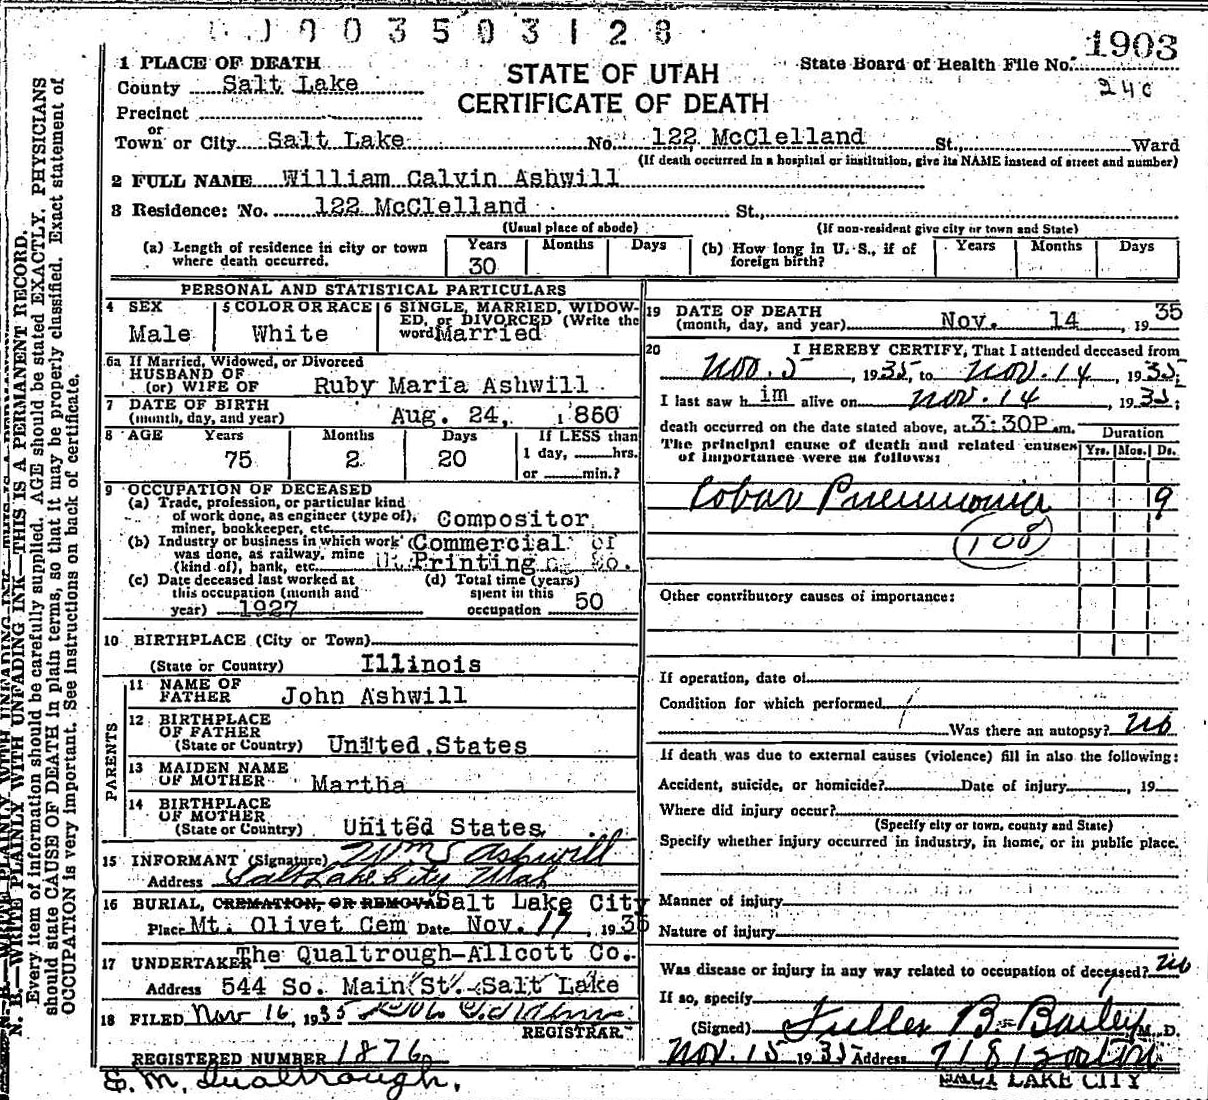 003503128
1903
State Board of Health File No.
240
1 PLACE OF DEATH
STATE OF UTAH
CERTIFICATE OF DEATH
County Salt Lake
Precinct
or
Town or City Salt Lake No. 122 McClelland St., Ward
(If death occurred in a hospital or institution, give its NAME instead of street and number)
2 FULL NAME William Calvin Ashwill
3 Residence: No. 122 McClelland St.,
(Usual place of abode) (If non-resident give city or town and State)
(a) Length of residence in city or town where death occurred. Years 30 Months Days
(b) How long in U. S., if of foreign birth? Years Months Days
PERSONAL AND STATISTICAL PARTICULARS
4 SEX Male
5 COLOR OR RACE White
6 SINGLE, MARRIED, WIDOWED, or DIVORCED (Write the word) Married
6a If Married, Widowed, or Divorced
HUSBAND OF
(or) WIFE OF Ruby Maria Ashwill
7 DATE OF BIRTH
(month, day, and year) Aug. 24, 1860
8 AGE Years 75 Months 2 Days 20 If LESS than 1 day, hrs. or min.?
9 OCCUPATION OF DECEASED
(a) Trade, profession, or particular kind of work done, as engineer (type of), miner, bookkeeper, etc. Compositor
(b) Industry or business in which work was done, as railway, mine (kind of), bank, etc. Commercial Printing Co.
(c) Date deceased last worked at this occupation (month and year) 1927
(d) Total time (years) spent in this occupation 50
10 BIRTHPLACE (City or Town)
(State or Country) Illinois
PARENTS
11 NAME OF FATHER John Ashwill
12 BIRTHPLACE OF FATHER
(State or Country) United States
13 MAIDEN NAME OF MOTHER Martha
14 BIRTHPLACE OF MOTHER
(State or Country) United States
15 INFORMANT (Signature) Wm S Ashwill
Address Salt Lake City Utah
16 BURIAL, CREMATION, OR REMOVAL Salt Lake City
Place Mt. Olivet Cem Date Nov. 17, 1935
17 UNDERTAKER The Qualtrough-Allcott Co.
Address 544 So. Main St. Salt Lake
18 FILED Nov 16, 1935
REGISTRAR
REGISTERED NUMBER 1876
E. M. Qualtrough.
19 DATE OF DEATH
(month, day, and year) Nov. 14, 1935
20 I HEREBY CERTIFY, That I attended deceased from
Nov. 5, 1935, to Nov. 14, 1935;
I last saw him alive on Nov. 14, 1935;
death occurred on the date stated above, at 3:30P m.
The principal cause of death and related causes of importance were as follows:
Duration
Yrs. Mos. Ds.
Lobar Pneumonia 9
108
Other contributory causes of importance:
If operation, date of
Condition for which performed
Was there an autopsy? no
If death was due to external causes (violence) fill in also the following:
Accident, suicide, or homicide? Date of injury, 19
Where did injury occur?
(Specify city or town, county and State)
Specify whether injury occurred in industry, in home, or in public place.
Manner of injury
Nature of injury
Was disease or injury in any way related to occupation of deceased? no
If so, specify
(Signed) Fuller B. Bailey M. D.
Nov. 15 1935 Address 718 Boston
SALT LAKE CITY
N. B.—WRITE PLAINLY WITH UNFADING INK—THIS IS A PERMANENT RECORD.
Every item of information should be carefully supplied. AGE should be stated EXACTLY. PHYSICIANS
should state CAUSE OF DEATH in plain terms, so that it may be properly classified. Exact statement of
OCCUPATION is very important. See instructions on back of certificate.